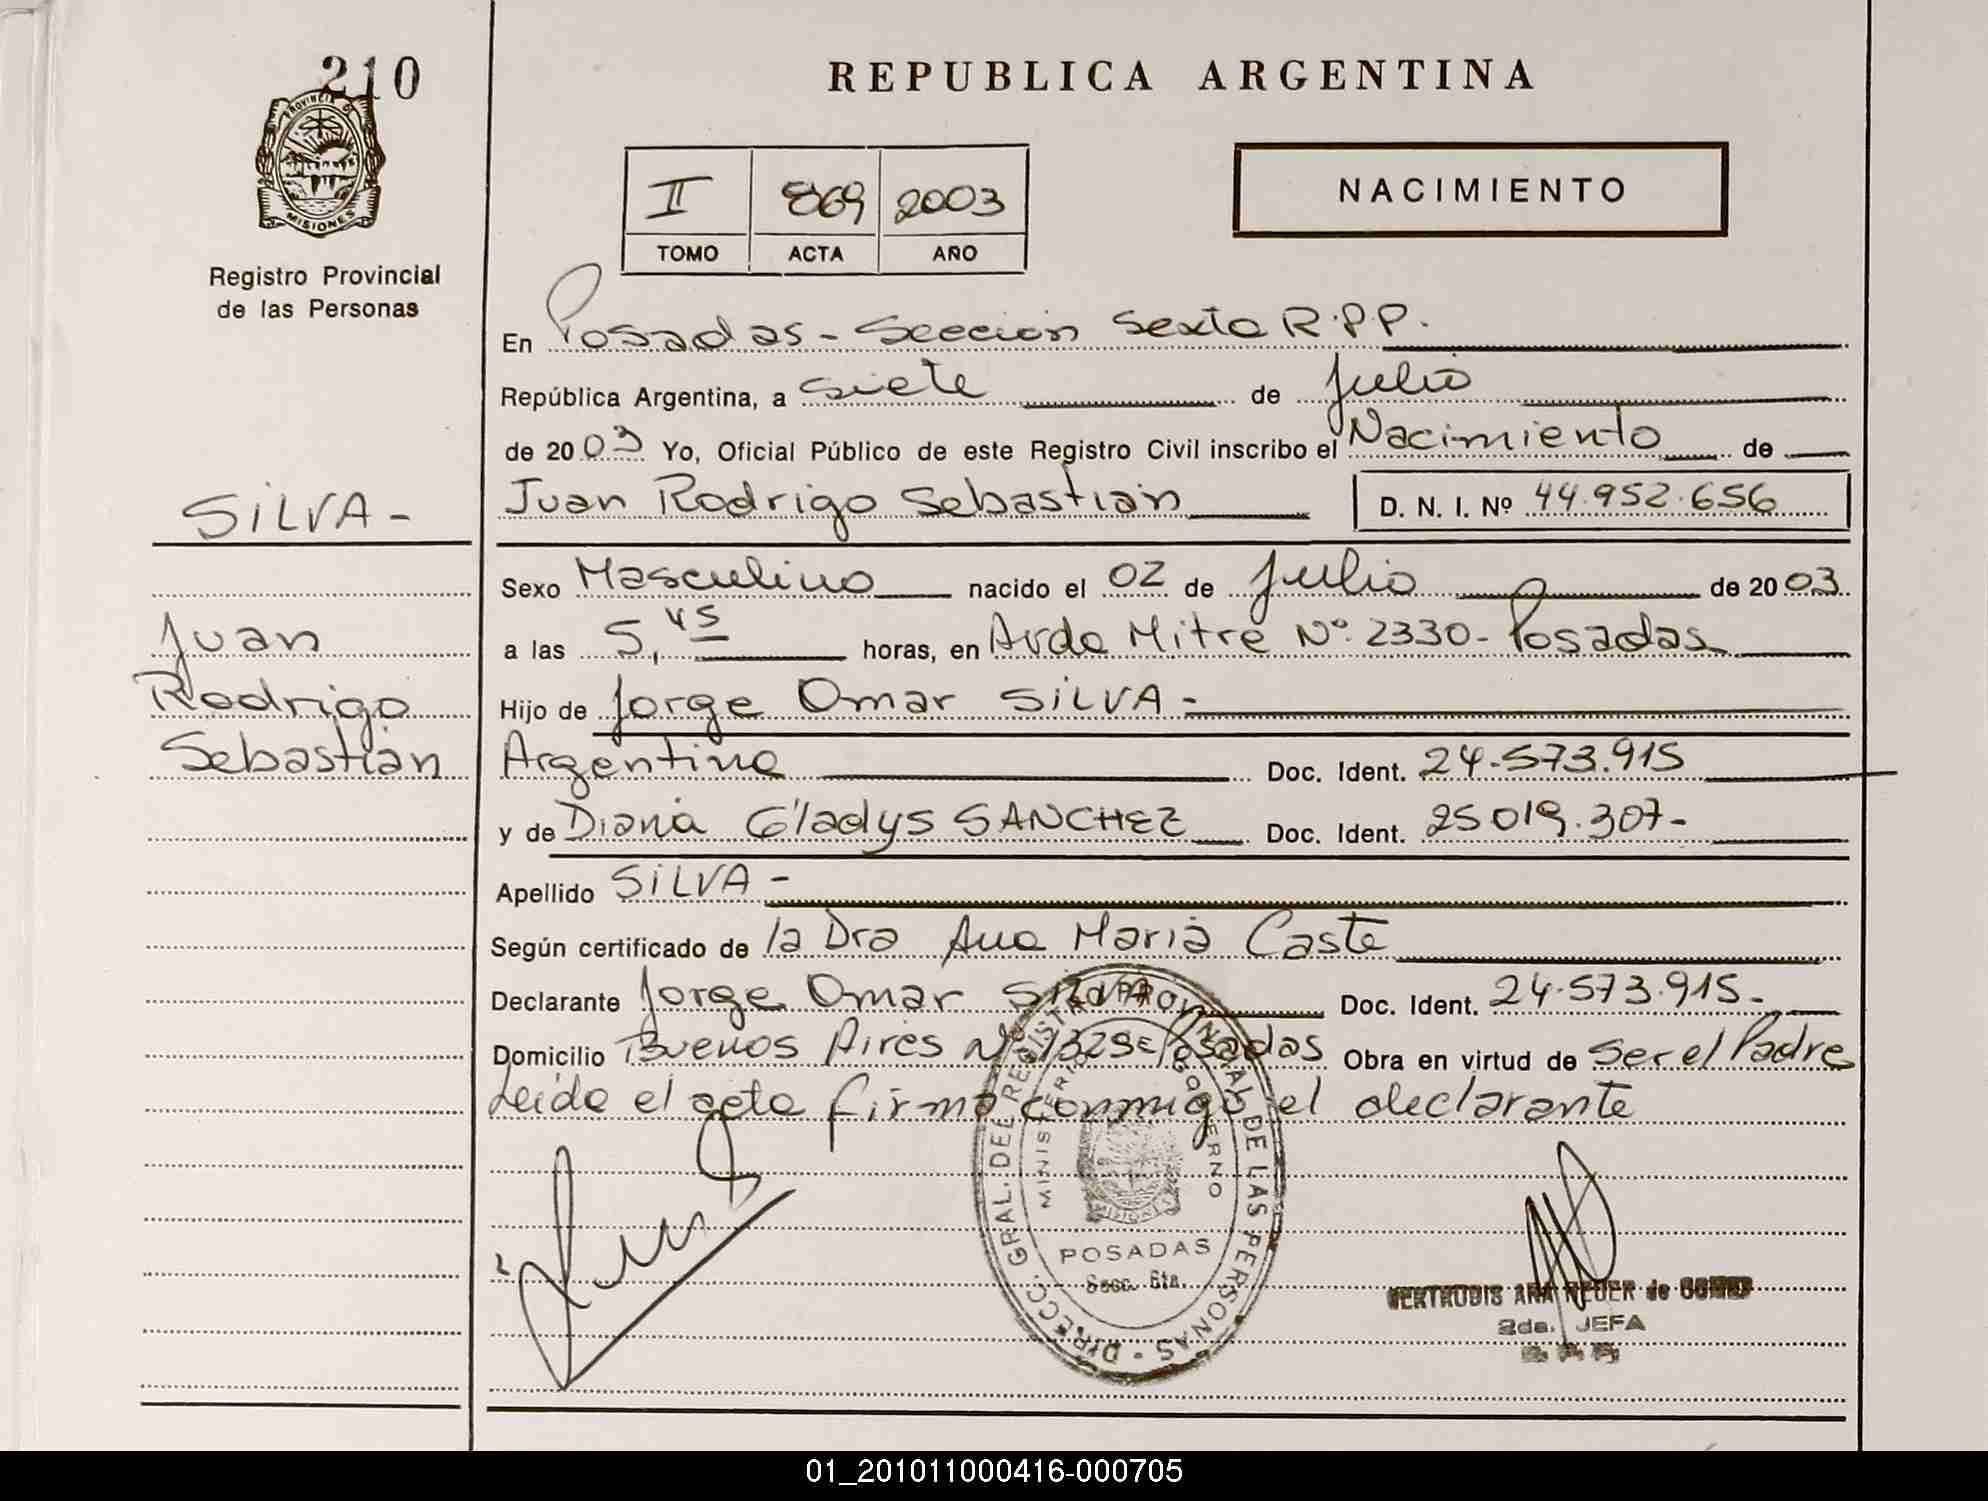 210
PROVINCIA DE
MISIONES
Registro Provincial
de las Personas
SILVA -
Juan
Rodrigo
Sebastián
REPUBLICA ARGENTINA
II 869 2003
TOMO ACTA AÑO
NACIMIENTO
En Posadas - Sección Sexta R.P.P.
República Argentina, a siete de Julio
de 2003 Yo, Oficial Público de este Registro Civil inscribo el Nacimiento de
Juan Rodrigo Sebastián D. N. I. Nº 44.952.656
Sexo Masculino nacido el 02 de Julio de 2003
a las 5,45 horas, en Avda Mitre Nº 2330 - Posadas
Hijo de Jorge Omar SILVA -
Argentina Doc. Ident. 24.573.915
y de Diana Gladys SANCHEZ Doc. Ident. 25.019.307 -
Apellido SILVA -
Según certificado de la Dra Ana María Caste
Declarante Jorge Omar SILVA Doc. Ident. 24.573.915 -
Domicilio Buenos Aires Nº Posadas Obra en virtud de Ser el Padre
Leída el acta firma conmigo el declarante
DIRECC. GRAL. DEL REGISTRO PROVINCIAL DE LAS PERSONAS
MINISTERIO GOBIERNO
MISIONES
POSADAS
Secc. 6ta.
GERTRUDIS ANA de
2da. JEFA
01_201011000416-000705